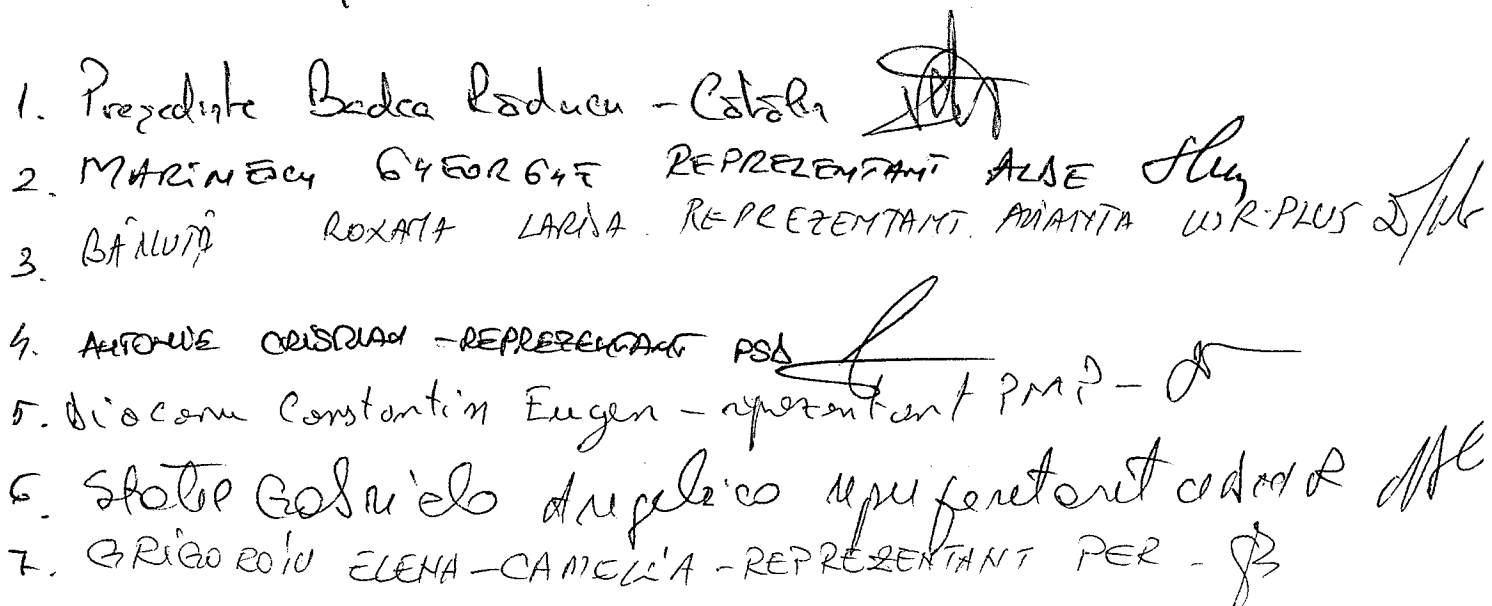 1. Președinte Badea Răducu - Cătălin
2. MARINESCU GHEORGHE REPREZENTANT ALDE
3. BĂNUȚĂ ROXANA LARISA REPREZENTANT ALIANȚA USR-PLUS
4. ANTONIE CRISTIAN - REPREZENTANT PSD
5. Diaconu Constantin Eugen - reprezentant PMP -
6. Statie Gabriela Angelica reprezentant
7. GRIGOROIU ELENA - CAMELIA - REPREZENTANT PER -